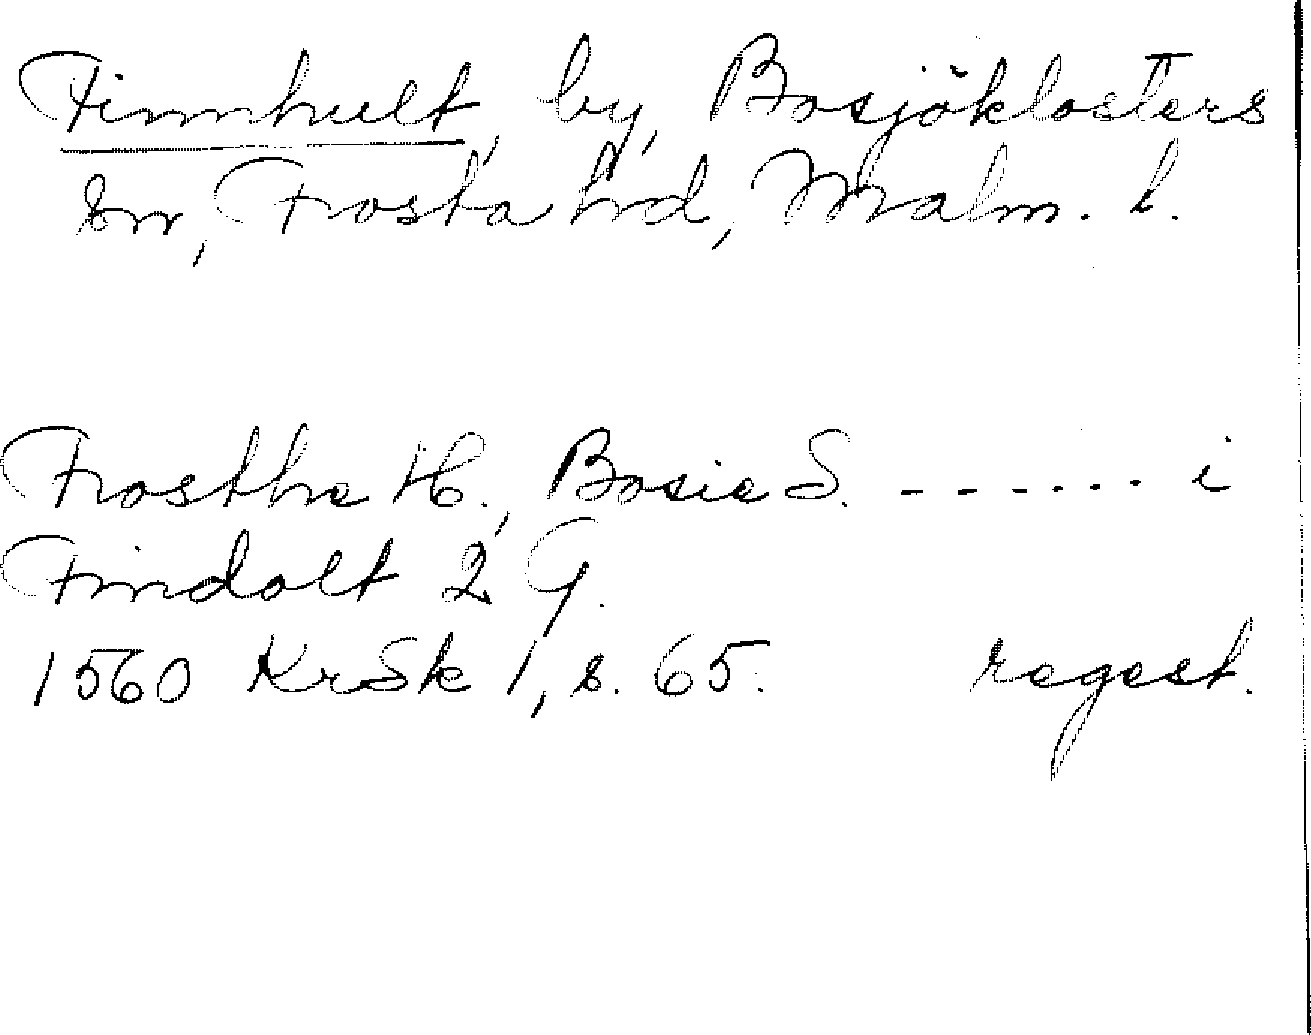 Finnhult, by, Bosjöklosters
sn, Frosta hd, Malm. l.
Frosthe H., Bosie S. ------- i
Findolt 2 G.
1560 KrSk 1, s. 65. regest.